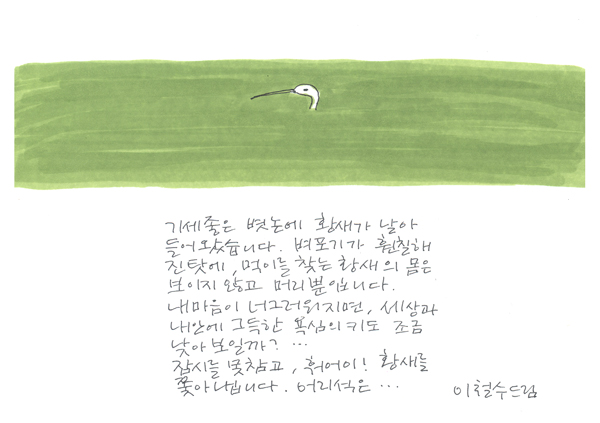 기세좋은 볏논에 황새가 날아
들어왔습니다. 벼포기가 훤칠해
진 탓에, 먹이를 찾는 황새의 몸은
보이지 않고 머리뿐입니다.
내마음이 너그러워지면, 세상과
내안에 그득한 욕심의 키도 조금
낮아 보일까? …
잠시를 못참고, 훠어이! 황새를
쫓아냅니다. 어리석은 …
이철수드림